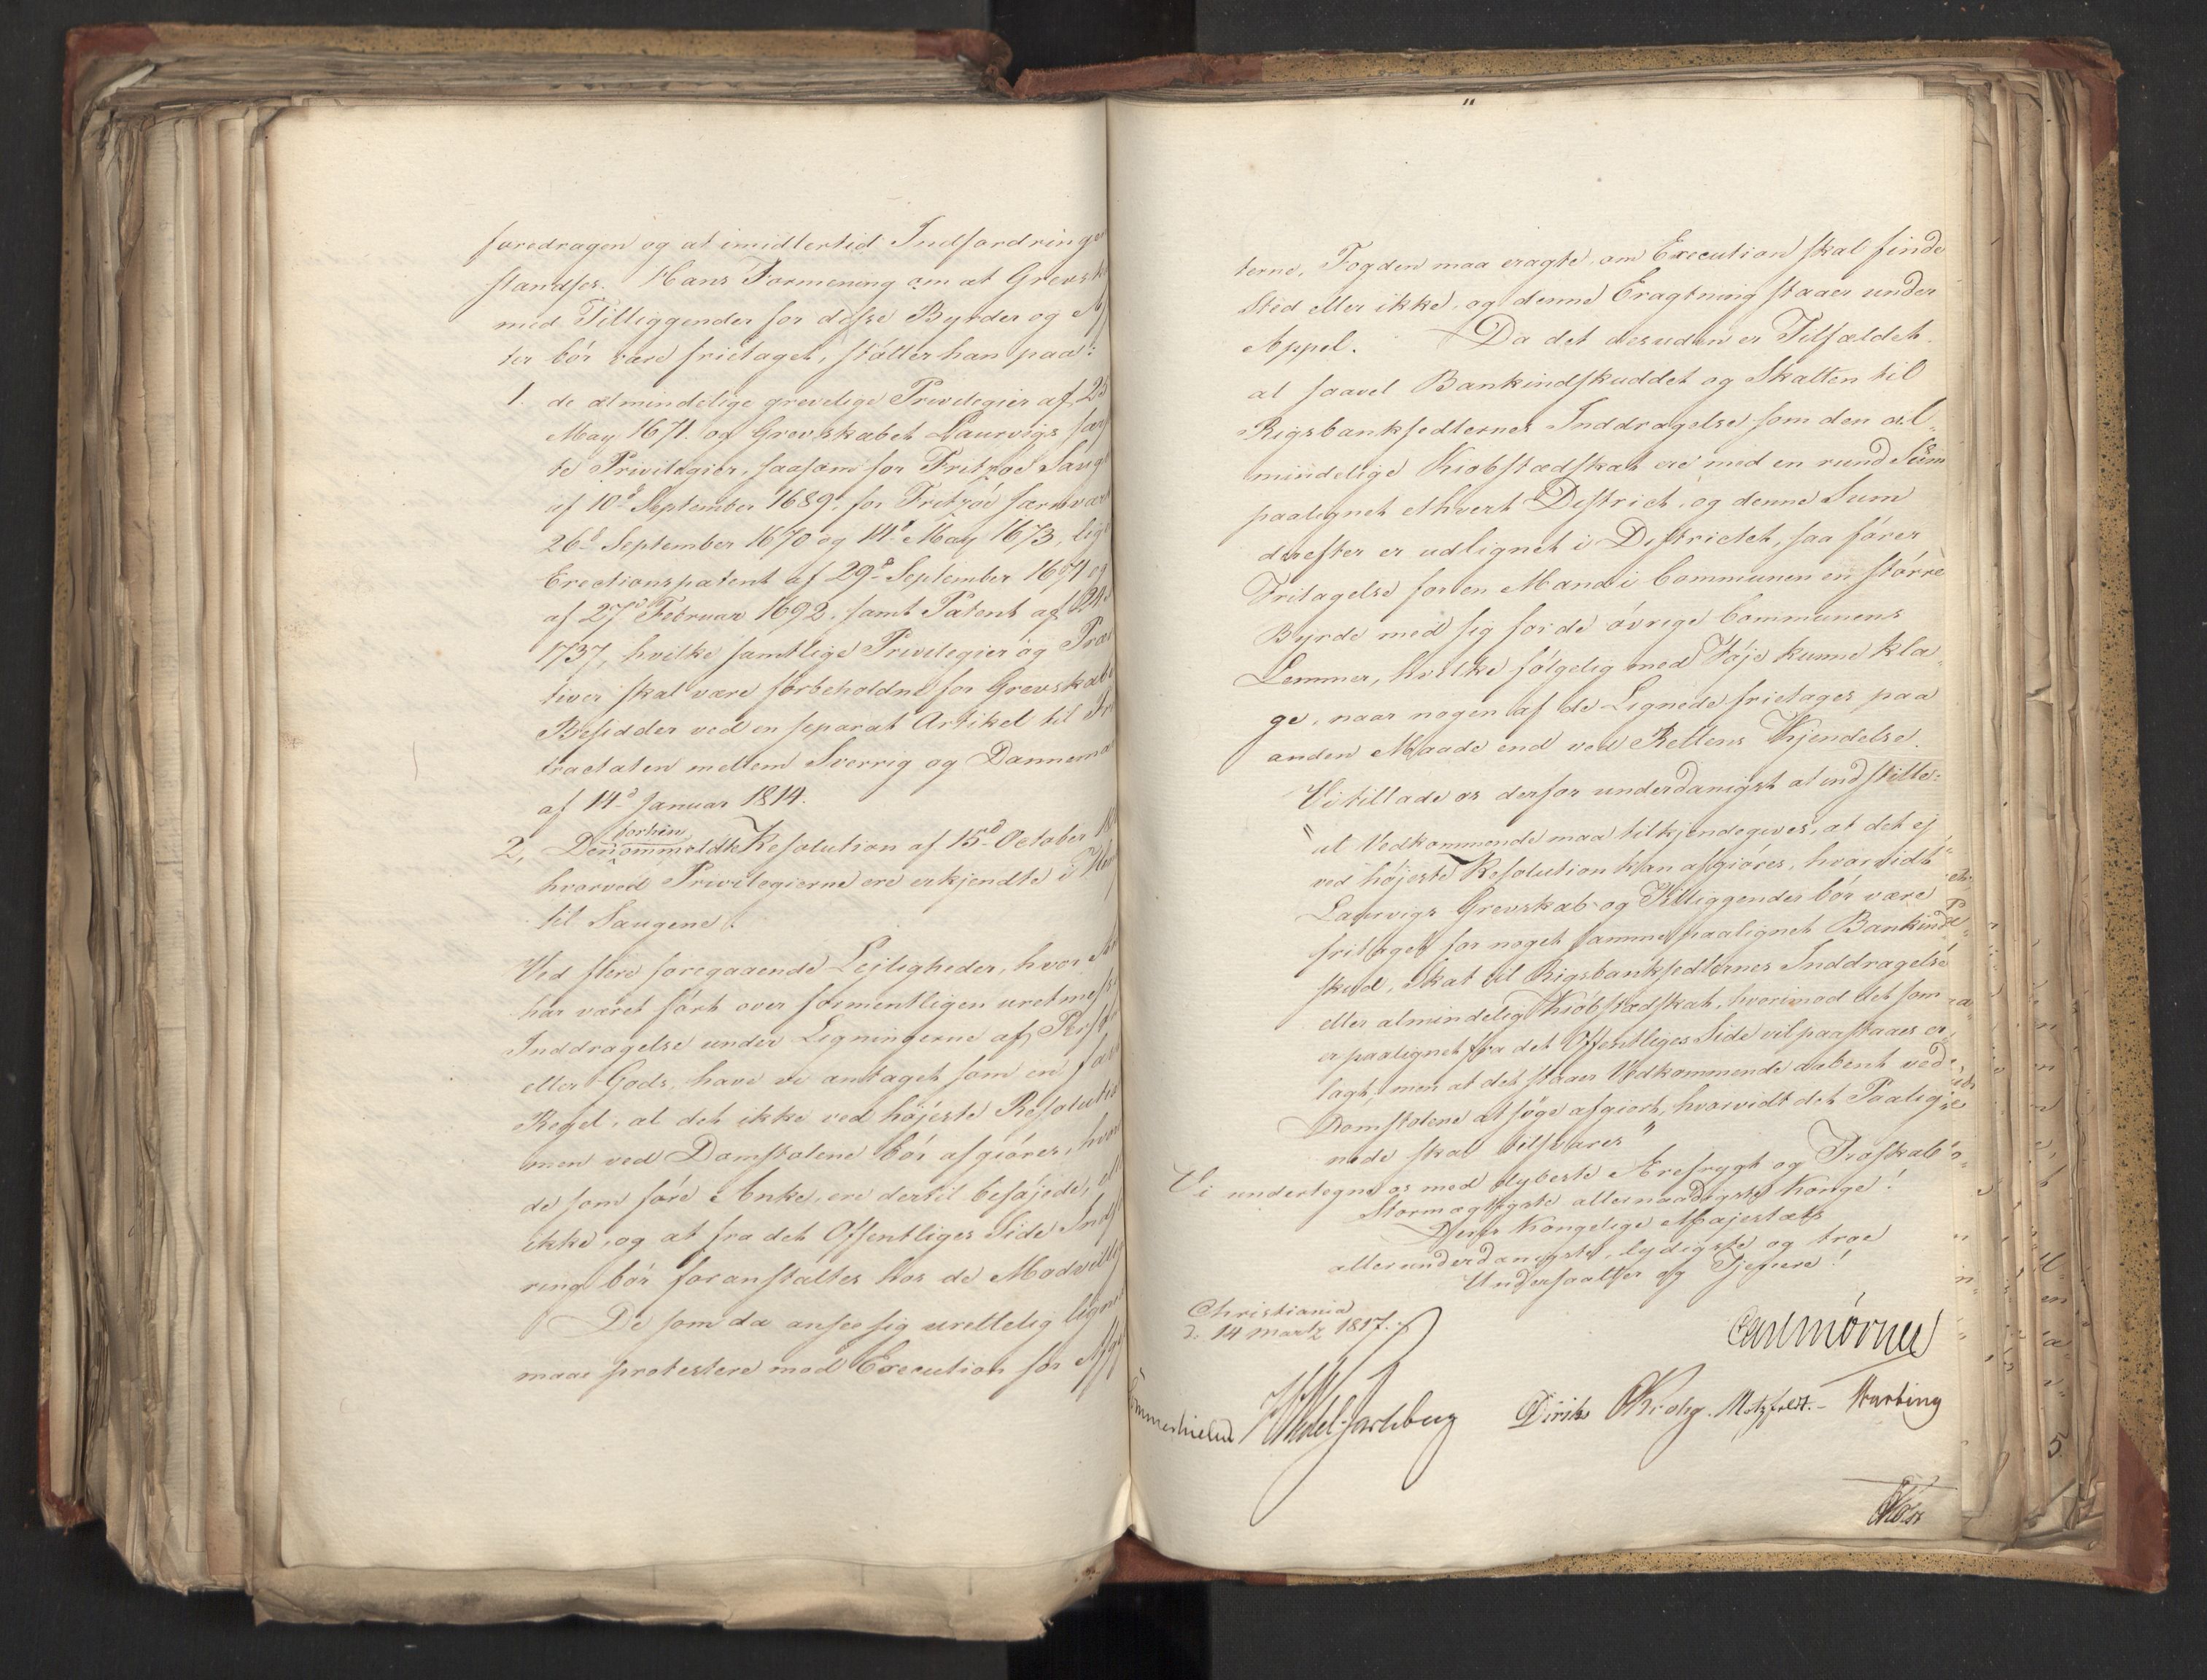 foredragen og at imidlertid Indfordringe
standses. Hans Formening om at Grevsk
med Tilliggender for disse Byrder og
ter bör være frietaget, stötter han paa:
1. de almindelige grevelige Privilegier af 25
May 1671. og Grevskabet Laurvigs sær
te Privilegier, saasom for Fritzöe Saug
af 10d September 1689. for Fritzöe Jernvær
26d September 1670 og 14d May 1673, lig
Erectionspatent af 29d September 1671 og
af 27d Februar 1692. samt Patent af
1737, hvilke samtlige Privilegier og Præ
tiver skal være forbeholdne for Grevskabe
Besidder ved en separat Artikel til Fr
tractaten mellem Sverrig og Dannema
af 14d Januar 1814.
2, Den forhen ommeldte Resolution af 15d October
hvorved Privilegierne ere erkjendte i
til Saugene.
Ved flere foregaaende Lejligheder, hvor
har været fört over formentligen uretmess
Inddragelse under Ligningerne af Pers
eller Gods, have vi antaget som en
Regel, at det ikke ved höjeste Resolutio
men ved Domstolene bör afgiöres, hvor
de som före Anke, ere dertil beföjede, ell
ikke, og at fra det Offentliges Side Indf
ring bör foranstaltes hos de Modvillig
De som da ansee sig urettelig ligne
maae protestere mod Execution for
"
terne, Fogden maa eragte, om Execution skal finde
Sted eller ikke, og denne Eragtning staaer under
Appel. Da det desuden er Tilfældet
at saavel Bankindskuddet og Skatten til
Rigsbanksedlernes Inddragelse som den al-
mindelige Kiöbstædskat ere med en rund Sum
paalignet ethvert District, og denne Sum
derefter er udlignet i Districtet, saa förer
Fritagelse for en Mand i Communen en större
Byrde med sig for de övrige Communens
Lemmer, hvilke fölgelig med Föje kunne kla-
ge, naar nogen af de Lignede frietages paa
anden Maade end ved Rettens Kjendelse.
Vi tillade os derfor underdanigst at indstille:
"at Vedkommende maa tilkjendegives, at det ej
ved höjeste Resolution kan afgiöres, hvorvidt
Laurvigs Grevskab og Tilliggender bör være
fritaget for noget samme paalignet Bankind-
skud, Skat til Rigsbanksedlernes Inddragelse
eller almindelig Kiöbstædskat, hvorimod det som
er paalignet fra det Offentliges Side vil paastaaes er-
lagt, men at det staaer Vedkommende aabent ved
Domstolene at söge afgiort, hvorvidt det Paalig-
nede skal tilsvares"
Vi undertegne os med dybeste Ærefrygt og Troskab
Stormægtigste allernaadigste Konge!
Deres Kongelige Majestæts
allerunderdanigste, lydigste og troe
Undersaatter og Tjenere!
Christiania
d. 14 Martz 1817.
Carl Mörner
Sommerhielm H Wedel-Jarlsberg Diriks CKrohg. Motzfeldt. -
5.